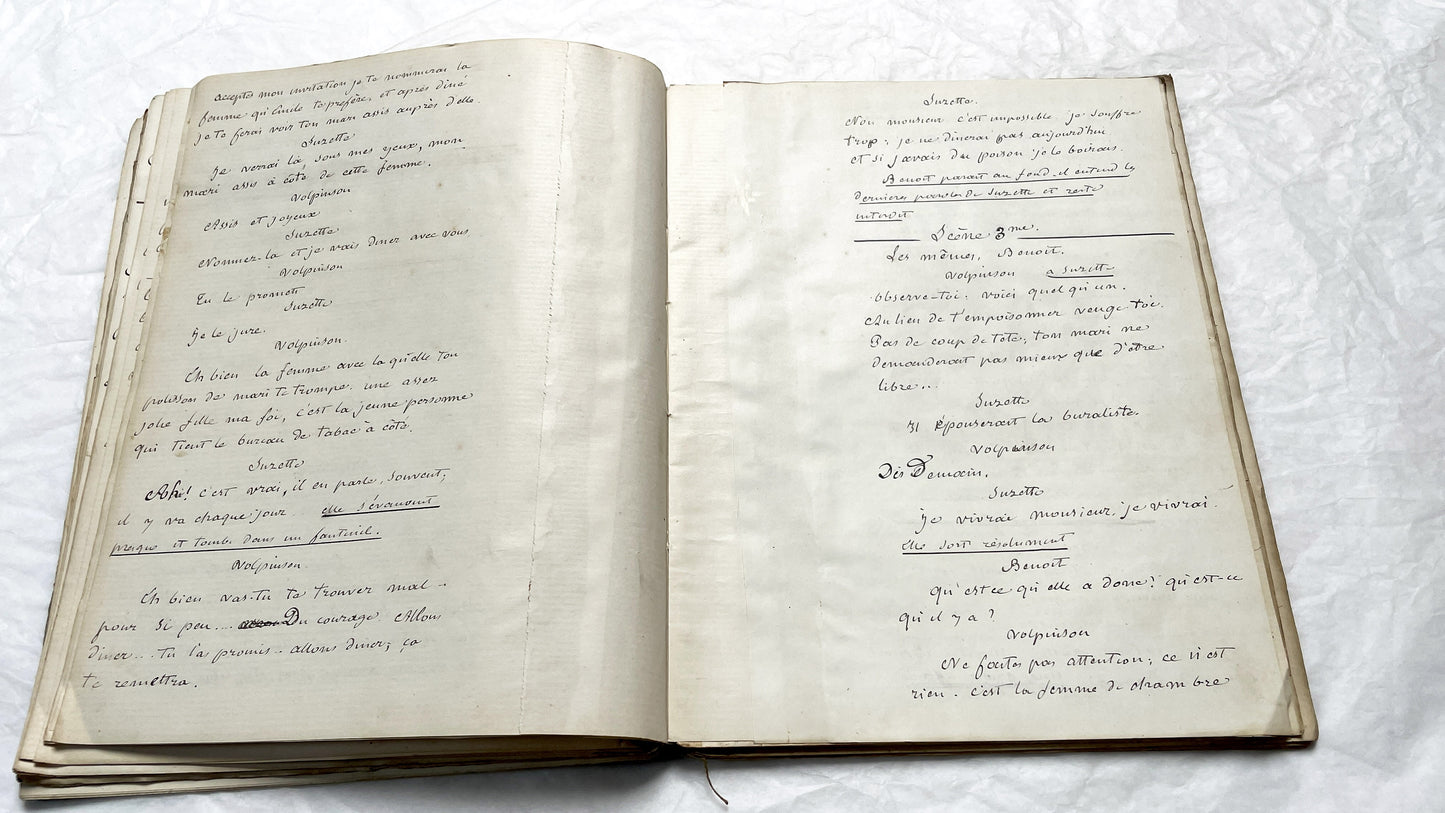 acceptes mon invitation je te nommerai la
femme qu'Emile te préfère, et après diné
je te ferai voir ton mari assis auprès d'elle.
Suzette
Je verrai là, sous mes yeux, mon
mari assis à côté de cette femme.
Volpinson
Assis et joyeux
Suzette
Nommez-la et je vais diner avec vous
Volpinson
Tu le promets
Suzette
Je le jure.
Volpinson.
Eh bien la femme avec laqu'elle ton
polisson de mari te trompe. une assez
jolie fille ma foi, c'est la jeune personne
qui tient le bureau de tabac à côté.
Suzette
Ah! c'est vrai, il en parle souvent;
il y va chaque jour... elle s'évanouit
presque et tombe dans un fauteuil.
Volpinson.
Eh bien vas-tu te trouver mal --
pour si peu.... Du courage. Allons
diner... tu l'as promis.. allons diner; ça
te remettra.
Suzette.
Non monsieur c'est impossible. je souffre
trop; je ne dinerai pas aujourd'hui
et si j'avais du poison je le boirais.
Benoit parait au fond. il entend les
dernieres paroles de Suzette et reste
interdit
Scène 3me.
Les mêmes, Benoit.
Volpinson à Suzette
Observe-toi; voici quelqu'un.
Au lieu de t'empoisonner venge toi.
Pas de coup de tête; ton mari ne
demanderait pas mieux que d'être
libre...
Suzette
Il épouserait la buraliste.
Volpinson
Dès Demain.
Suzette
Je vivrai monsieur, je vivrai.
elle sort résolument
Benoit
Qu'est ce qu'elle a donc? qu'est-ce
qu'il y a?
Volpinson
Ne faites pas attention; ce n'est
rien. c'est la femme de chambre